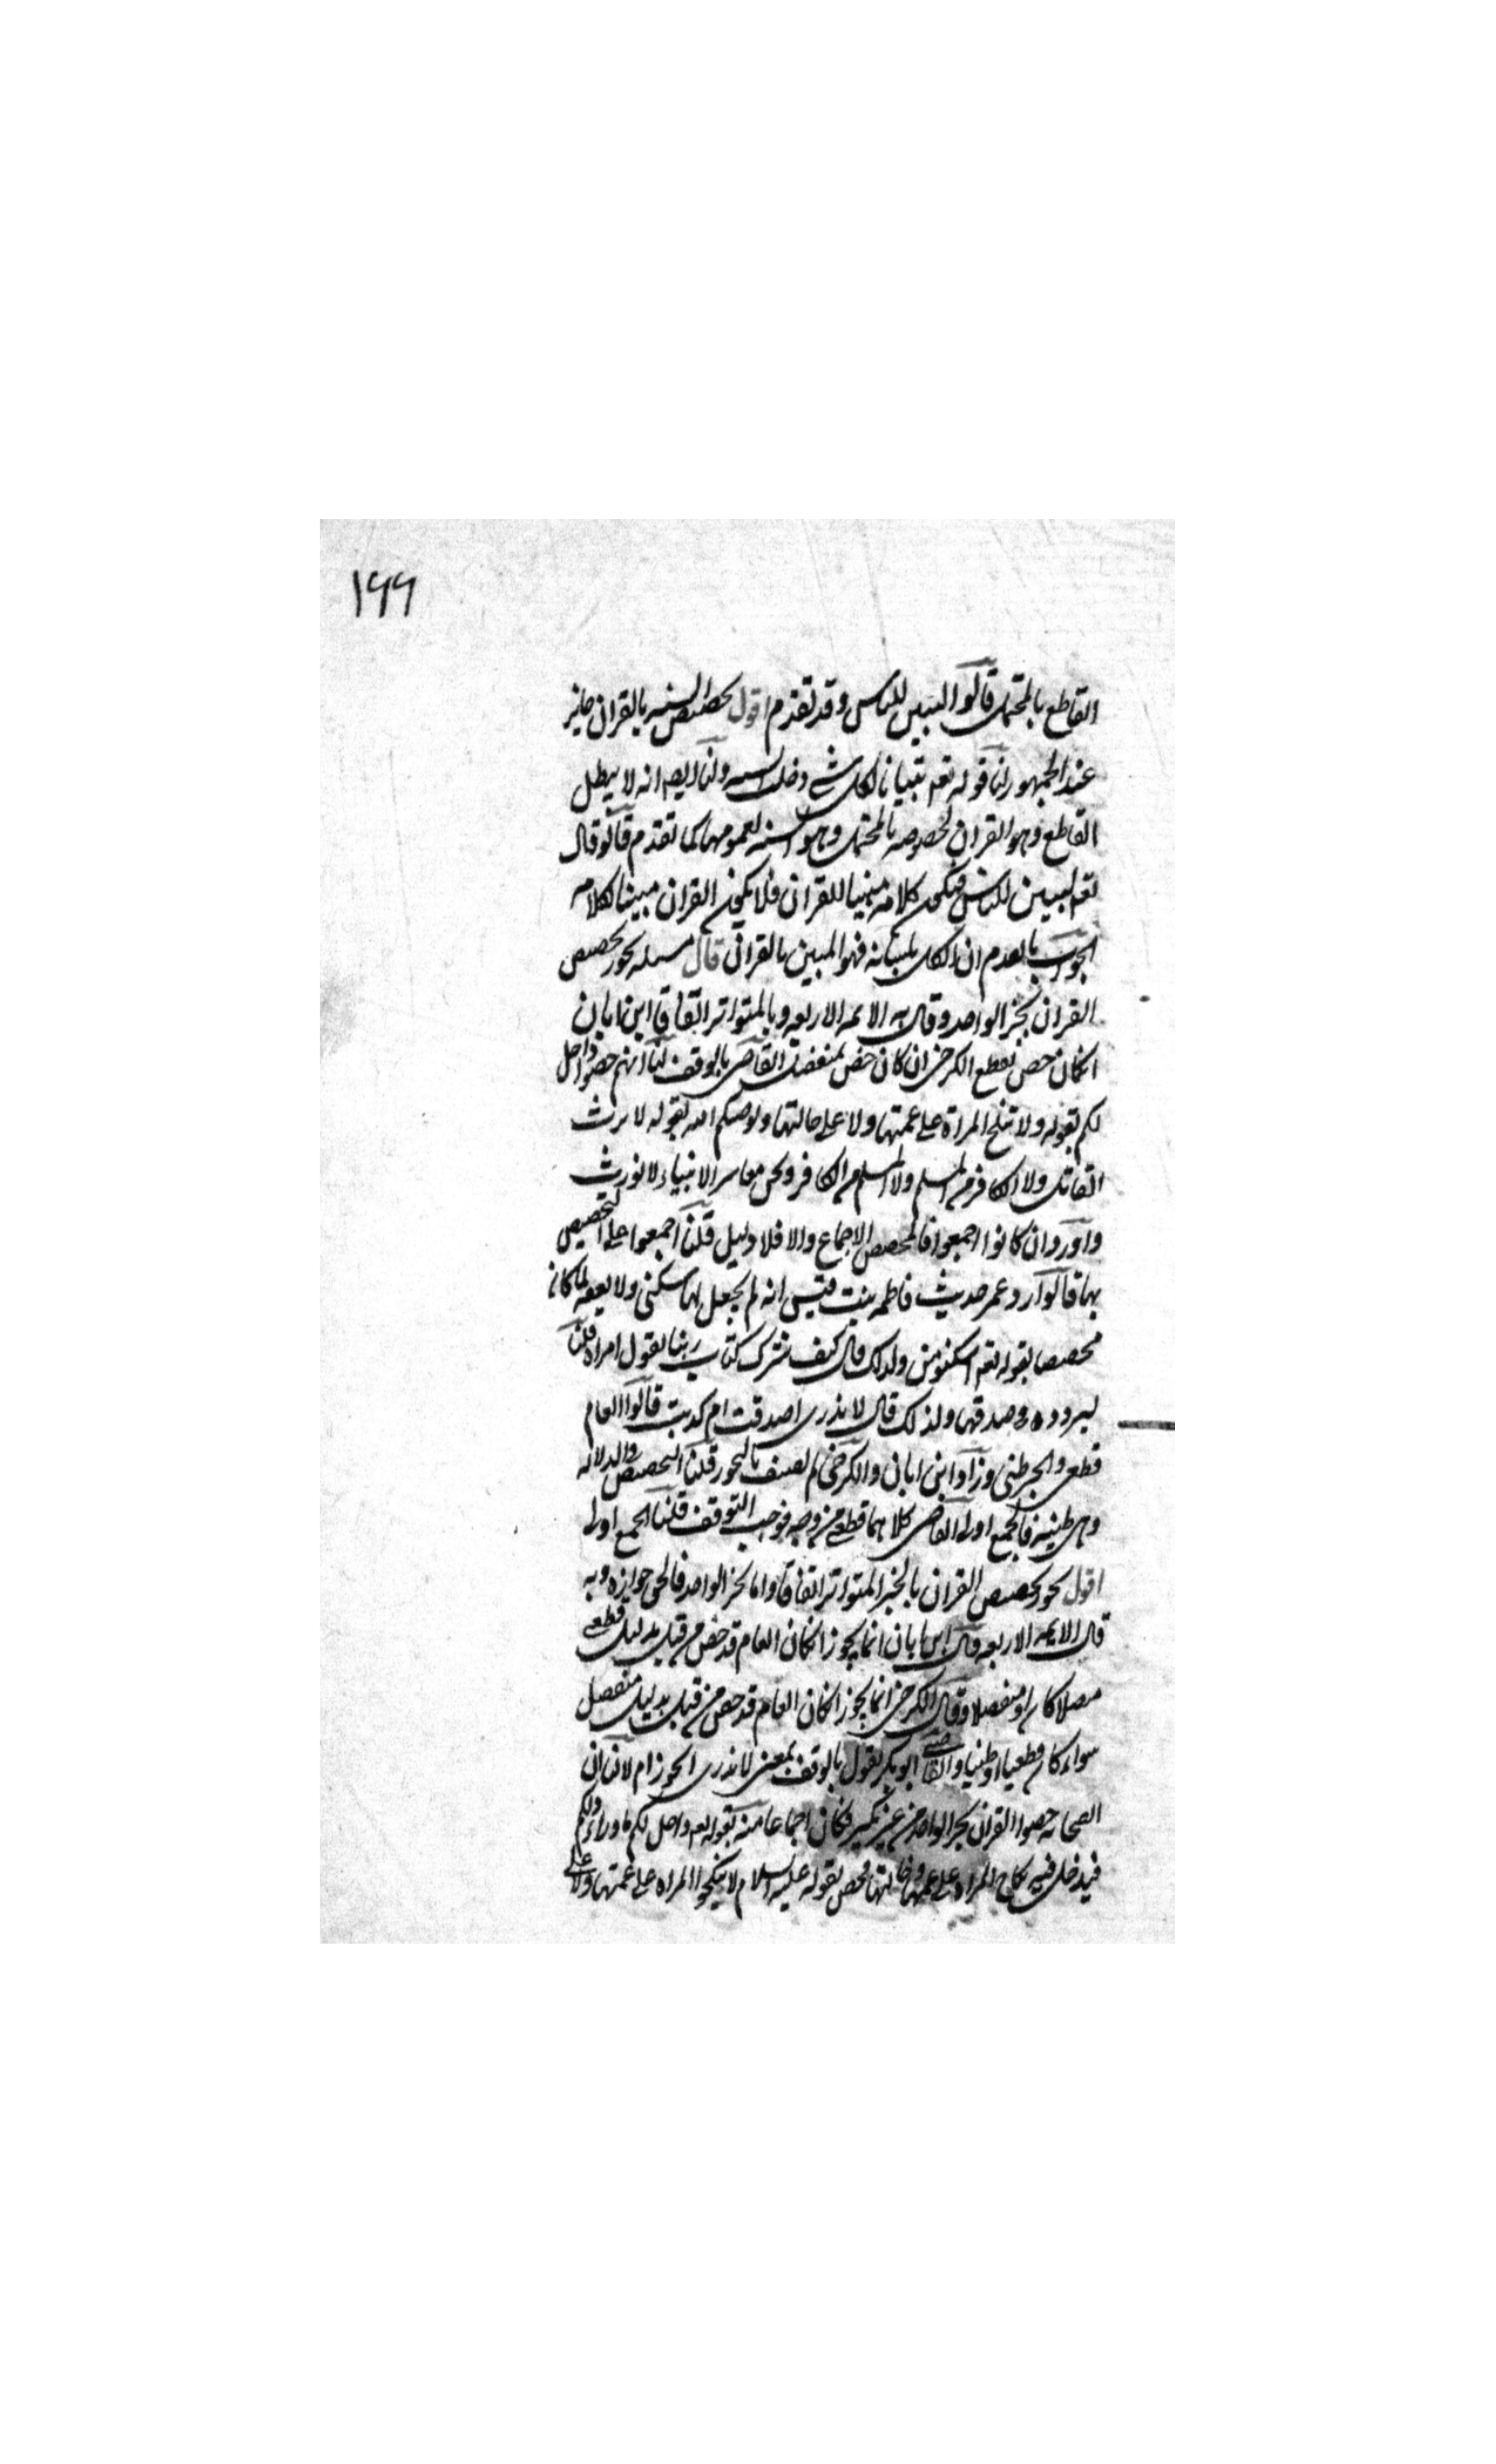 ١٩٩
القاطع بالمحتمل قالوا لتبين للناس وقد تقدم اقول تخصيص السنه بالقران جايز
عند الجمهور لنا قوله تعه تبيانا لكل شي دخلت السنه ولنا ايضه انه لا يبطل
القاطع وهو القران لخصوصه بالمحتمل وهو السنه لعمومها كما تقدم قالوا قال
تعه لتبين للناس فيكون كلامه مبينا للقران فلا يكون القران مبينا لكلامه
الجواب ما تقدم ان الكل بلسانه فهو المبين بالقران قال مسله يجوز تخصيص
القران بخبر الواحد وقال به الايمه الاربعه وبالمتواتر اتفاقا ابن ابان
ان كان خص بقطع الكرخي ان كان خص بمنفصل القاضي بالوقف لنا انهم خصوا واحل
لكم بقوله ولا تنكح المراة على عمتها ولا على خالتها ويوصيكم الله بقوله لا يرث
القاتل ولا الكافر من المسلم ولا المسلم من الكافر ونحن معاشر الانبياء لا نورث
واورد ان كانوا اجمعوا فالمخصص الاجماع والا فلا دليل قلنا اجمعوا على التخصيص
بها قالوا رد عمر حديث فاطمه بنت قيس انه لم يجعل لها سكنى ولا نفقه لما كان
مخصصا لقوله تعه اسكنوهن ولذلك قال كيف نترك كتاب ربنا لقول امراه قلنا
لتردده في صدقها ولذلك قال لا ندرى اصدقت ام كذبت قالوا العام
قطعي والخبر ظني وزاد ابن ابان والكرخي لم يضعف بالتجوز قلنا التخصيص في الدلاله
وهي ظنيه فالجمع اولى القاضي كلاهما قطعي من وجه فوجب التوقف قلنا الجمع اولى
اقول يجوز تخصيص القران بالخبر المتواتر اتفاقا واما بخبر الواحد فالحق جوازه وبه
قال الايمه الاربعه وقال ابن ابان انما يجوز اذا كان العام قد خص من قبل بدليل قطعي
متصلا كان او منفصلا وقال الكرخي انما يجوز اذا كان العام قد خص من قبل بدليل منفصل
سواء كان قطعيا او ظنيا والقاضي ابو بكر يقول بالوقف بمعنى لا ندرى ايجوز ام لا لنا ان
الصحابه خصوا القران بخبر الواحد من غير نكير فكان اجماعا منه قوله تعه واحل لكم ما وراء ذلكم
فيدخل فيه نكاح المراه على عمتها وخالتها فخص بقوله عليه السلام لا ينكحوا المراه على عمتها ولا على